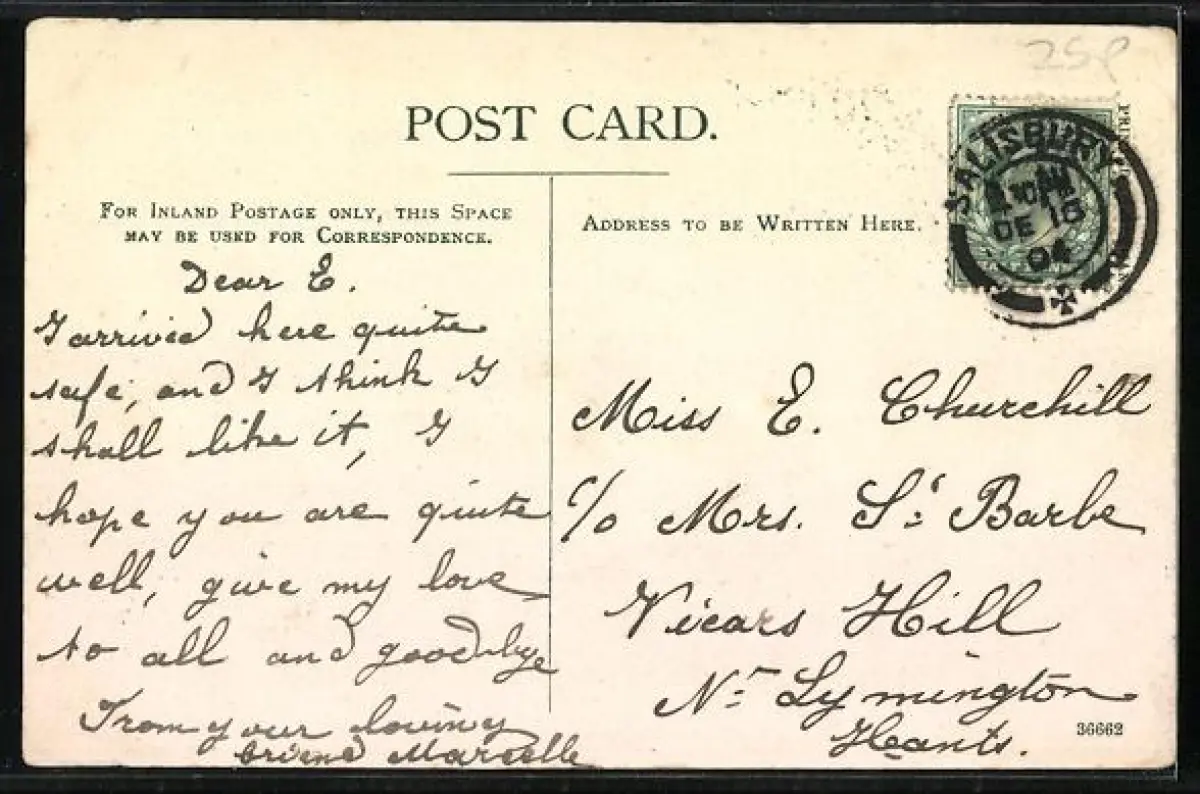 25p
POST CARD.
FOR INLAND POSTAGE ONLY, THIS SPACE
MAY BE USED FOR CORRESPONDENCE.
Dear E.
I arrived here quite
safe, and I think I
shall like it, I
hope you are quite
well, give my love
to all and goodbye
From your loving
friend Marcelle
ADDRESS TO BE WRITTEN HERE.
SALISBURY
DE 18
04
Miss E. Churchill
c/o Mrs. St Barbe
Vicars Hill
Nr Lymington
Hants.
36662